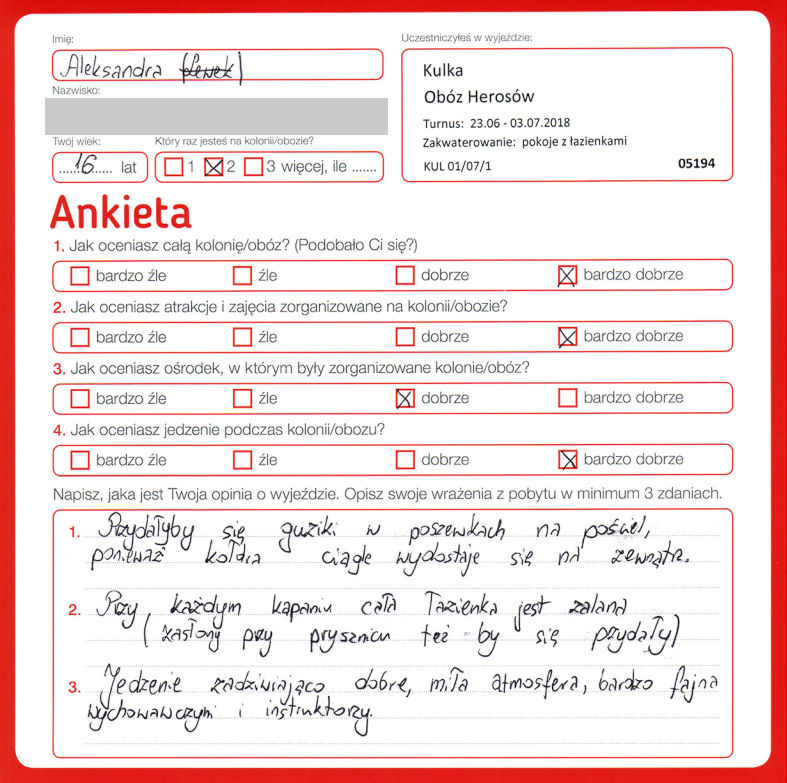 Imię:
Aleksandra
Nazwisko:
Twój wiek:
Który raz jesteś na kolonii/obozie?
16 lat
1 2 3 więcej, ile .......
Uczestniczyłeś w wyjeździe:
Kulka
Obóz Herosów
Turnus: 23.06 - 03.07.2018
Zakwaterowanie: pokoje z łazienkami
KUL 01/07/1 05194
Ankieta
1. Jak oceniasz całą kolonię/obóz? (Podobało Ci się?)
bardzo źle źle dobrze bardzo dobrze
2. Jak oceniasz atrakcje i zajęcia zorganizowane na kolonii/obozie?
bardzo źle źle dobrze bardzo dobrze
3. Jak oceniasz ośrodek, w którym były zorganizowane kolonie/obóz?
bardzo źle źle dobrze bardzo dobrze
4. Jak oceniasz jedzenie podczas kolonii/obozu?
bardzo źle źle dobrze bardzo dobrze
Napisz, jaka jest Twoja opinia o wyjeździe. Opisz swoje wrażenia z pobytu w minimum 3 zdaniach.
1. Przydałyby się guziki w poszewkach na pościel,
ponieważ kołdra ciągle wydostaje się na zewnątrz.
2. Przy każdym kąpaniu cała łazienka jest zalana
(zasłony przy prysznicu też by się przydały)
3. Jedzenie zadziwiająco dobre, miła atmosfera, bardzo fajna
wychowawczyni i instruktorzy.